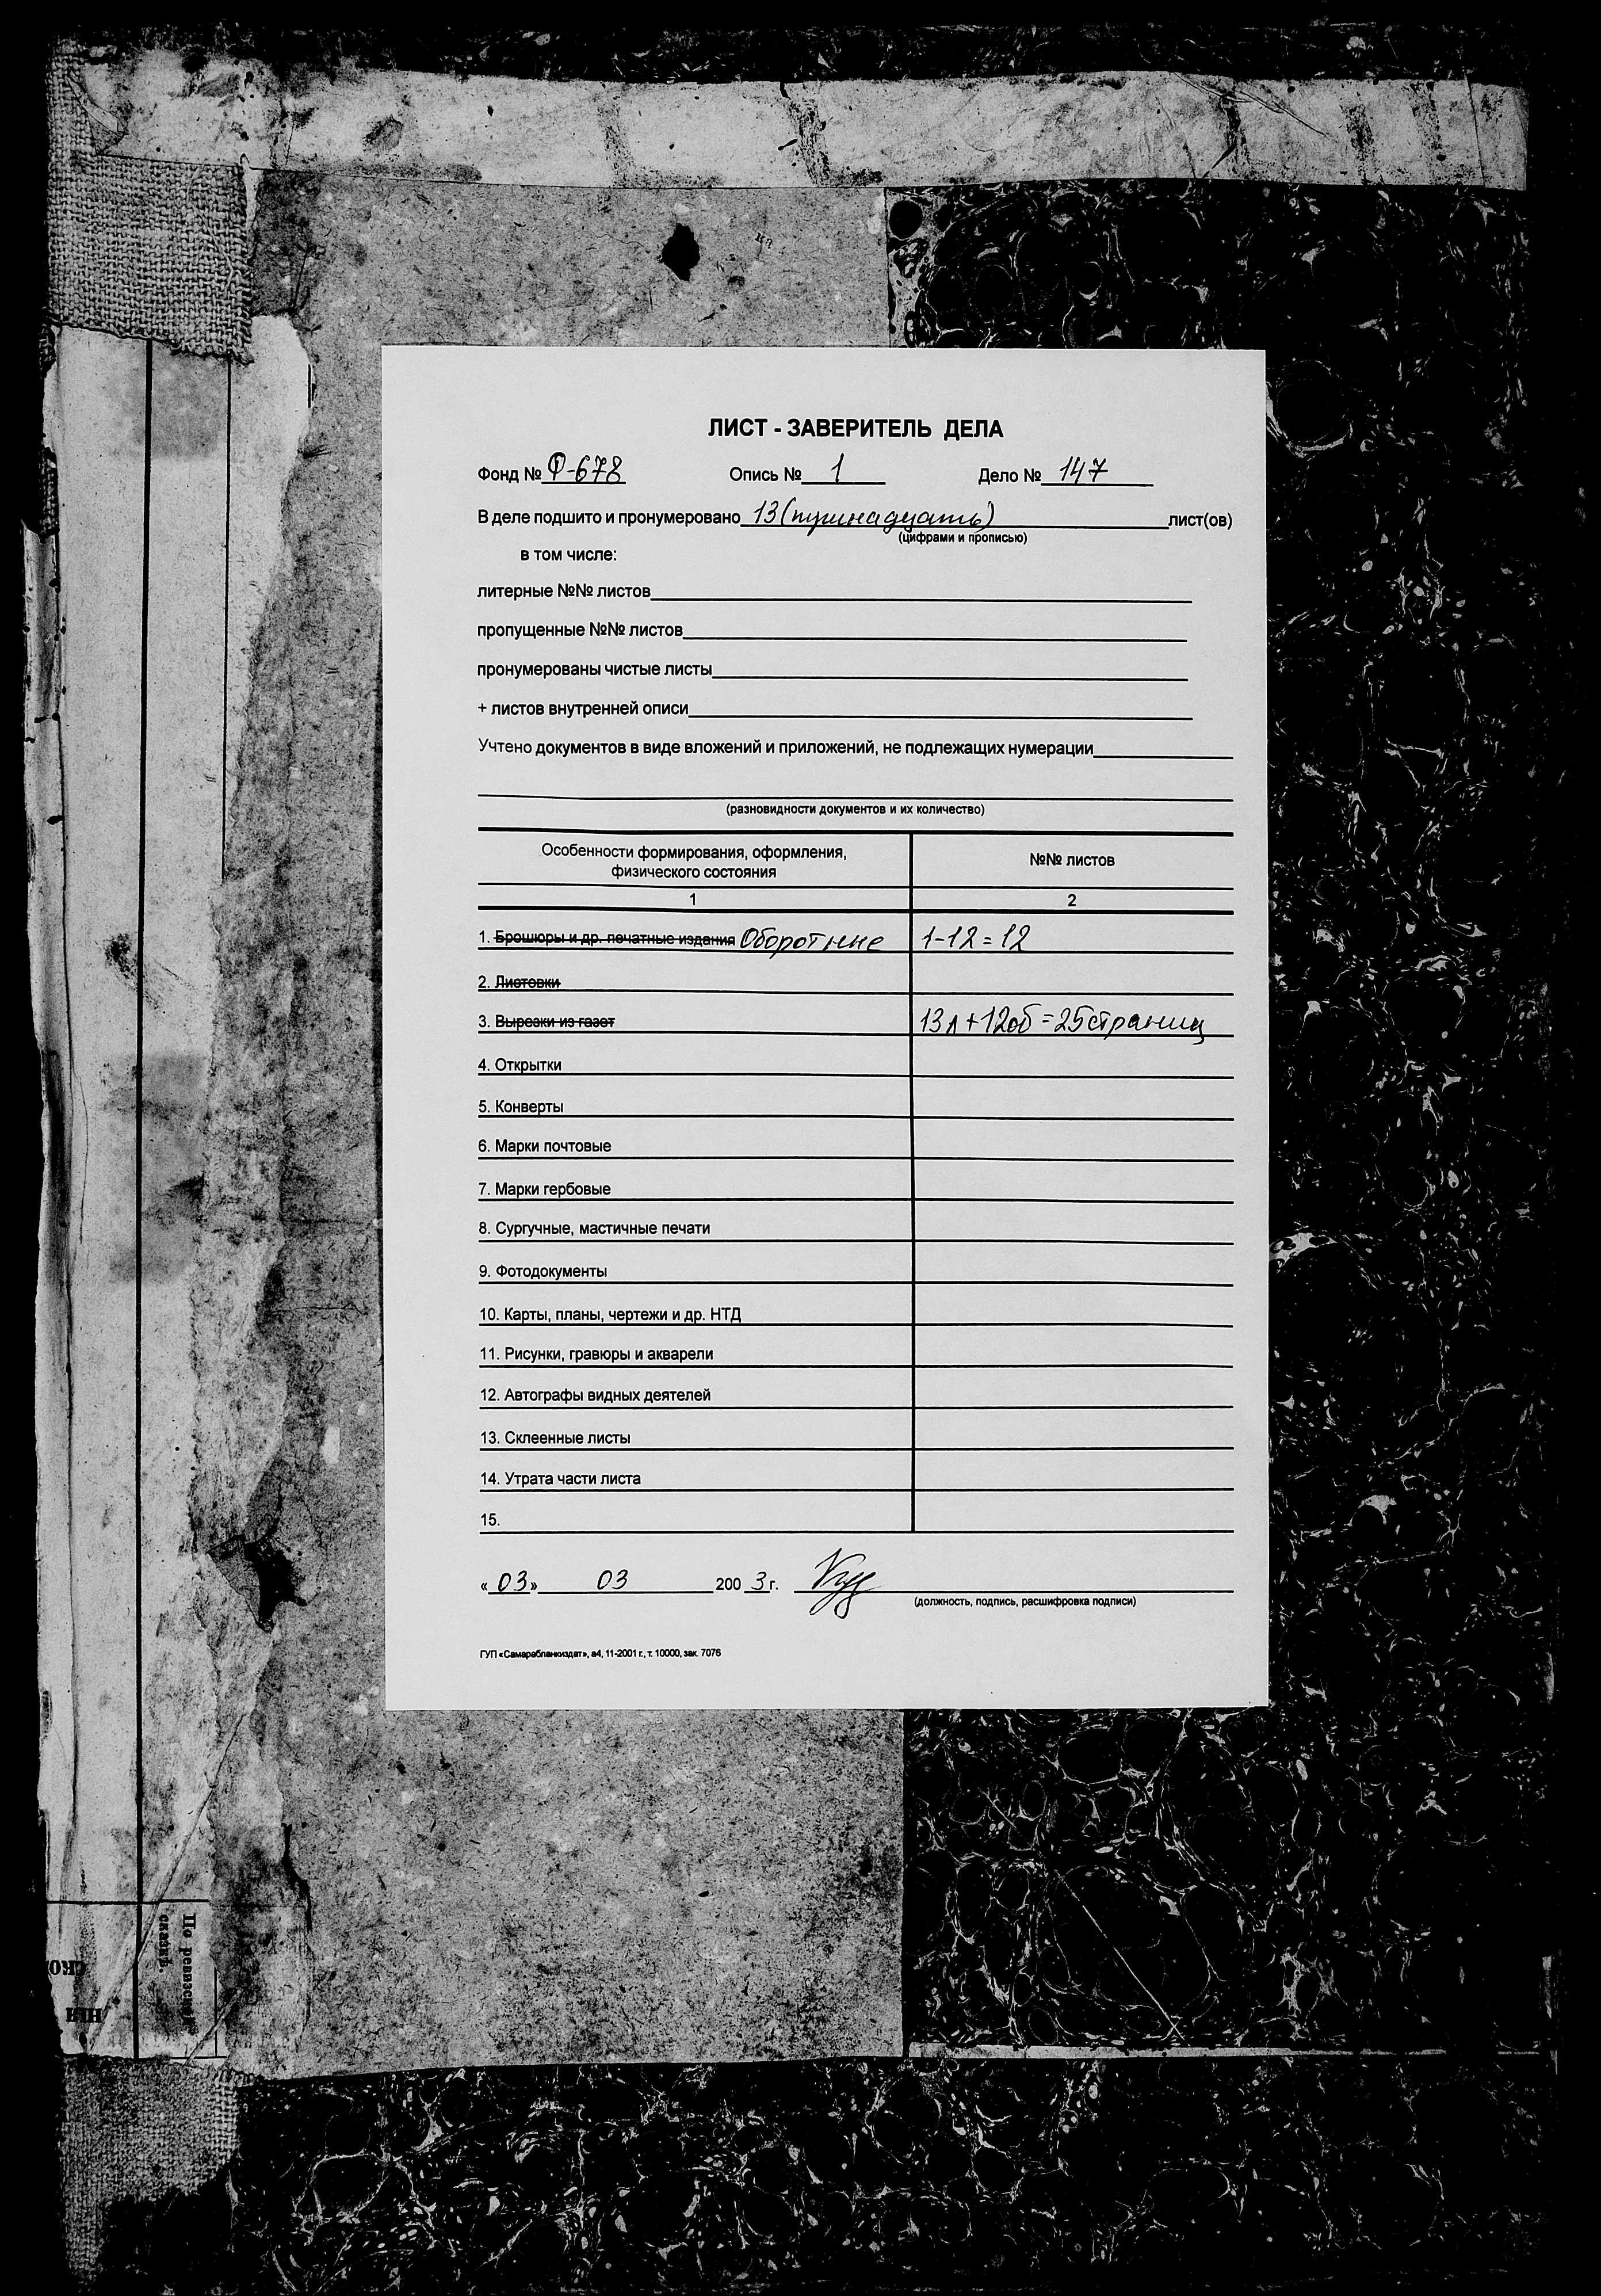 ЛИСТ - ЗАВЕРИТЕЛЬ ДЕЛА
Фонд № Ф-678 Опись № 1 Дело № 147
В деле подшито и пронумеровано 13 (тринадцать) лист(ов)
(цифрами и прописью)
в том числе:
литерные №№ листов
пропущенные №№ листов
пронумерованы чистые листы
+ листов внутренней описи
Учтено документов в виде вложений и приложений, не подлежащих нумерации
(разновидности документов и их количество)
Особенности формирования, оформления, №№ листов
физического состояния
1 2
1. Брошюры и др. печатные издания Оборотные 1-12 = 12
2. Листовки
3. Вырезки из газет 13л + 12об = 25 страниц
4. Открытки
5. Конверты
6. Марки почтовые
7. Марки гербовые
8. Сургучные, мастичные печати
9. Фотодокументы
10. Карты, планы, чертежи и др. НТД
11. Рисунки, гравюры и акварели
12. Автографы видных деятелей
13. Склеенные листы
14. Утрата части листа
15.
« 03 » 03 200 3 г.
(должность, подпись, расшифровка подписи)
ГУП «Самарабланкиздат», а4, 11-2001 г., т. 10000, зак. 7076
ка
По
сказкѣ.
ско
нія